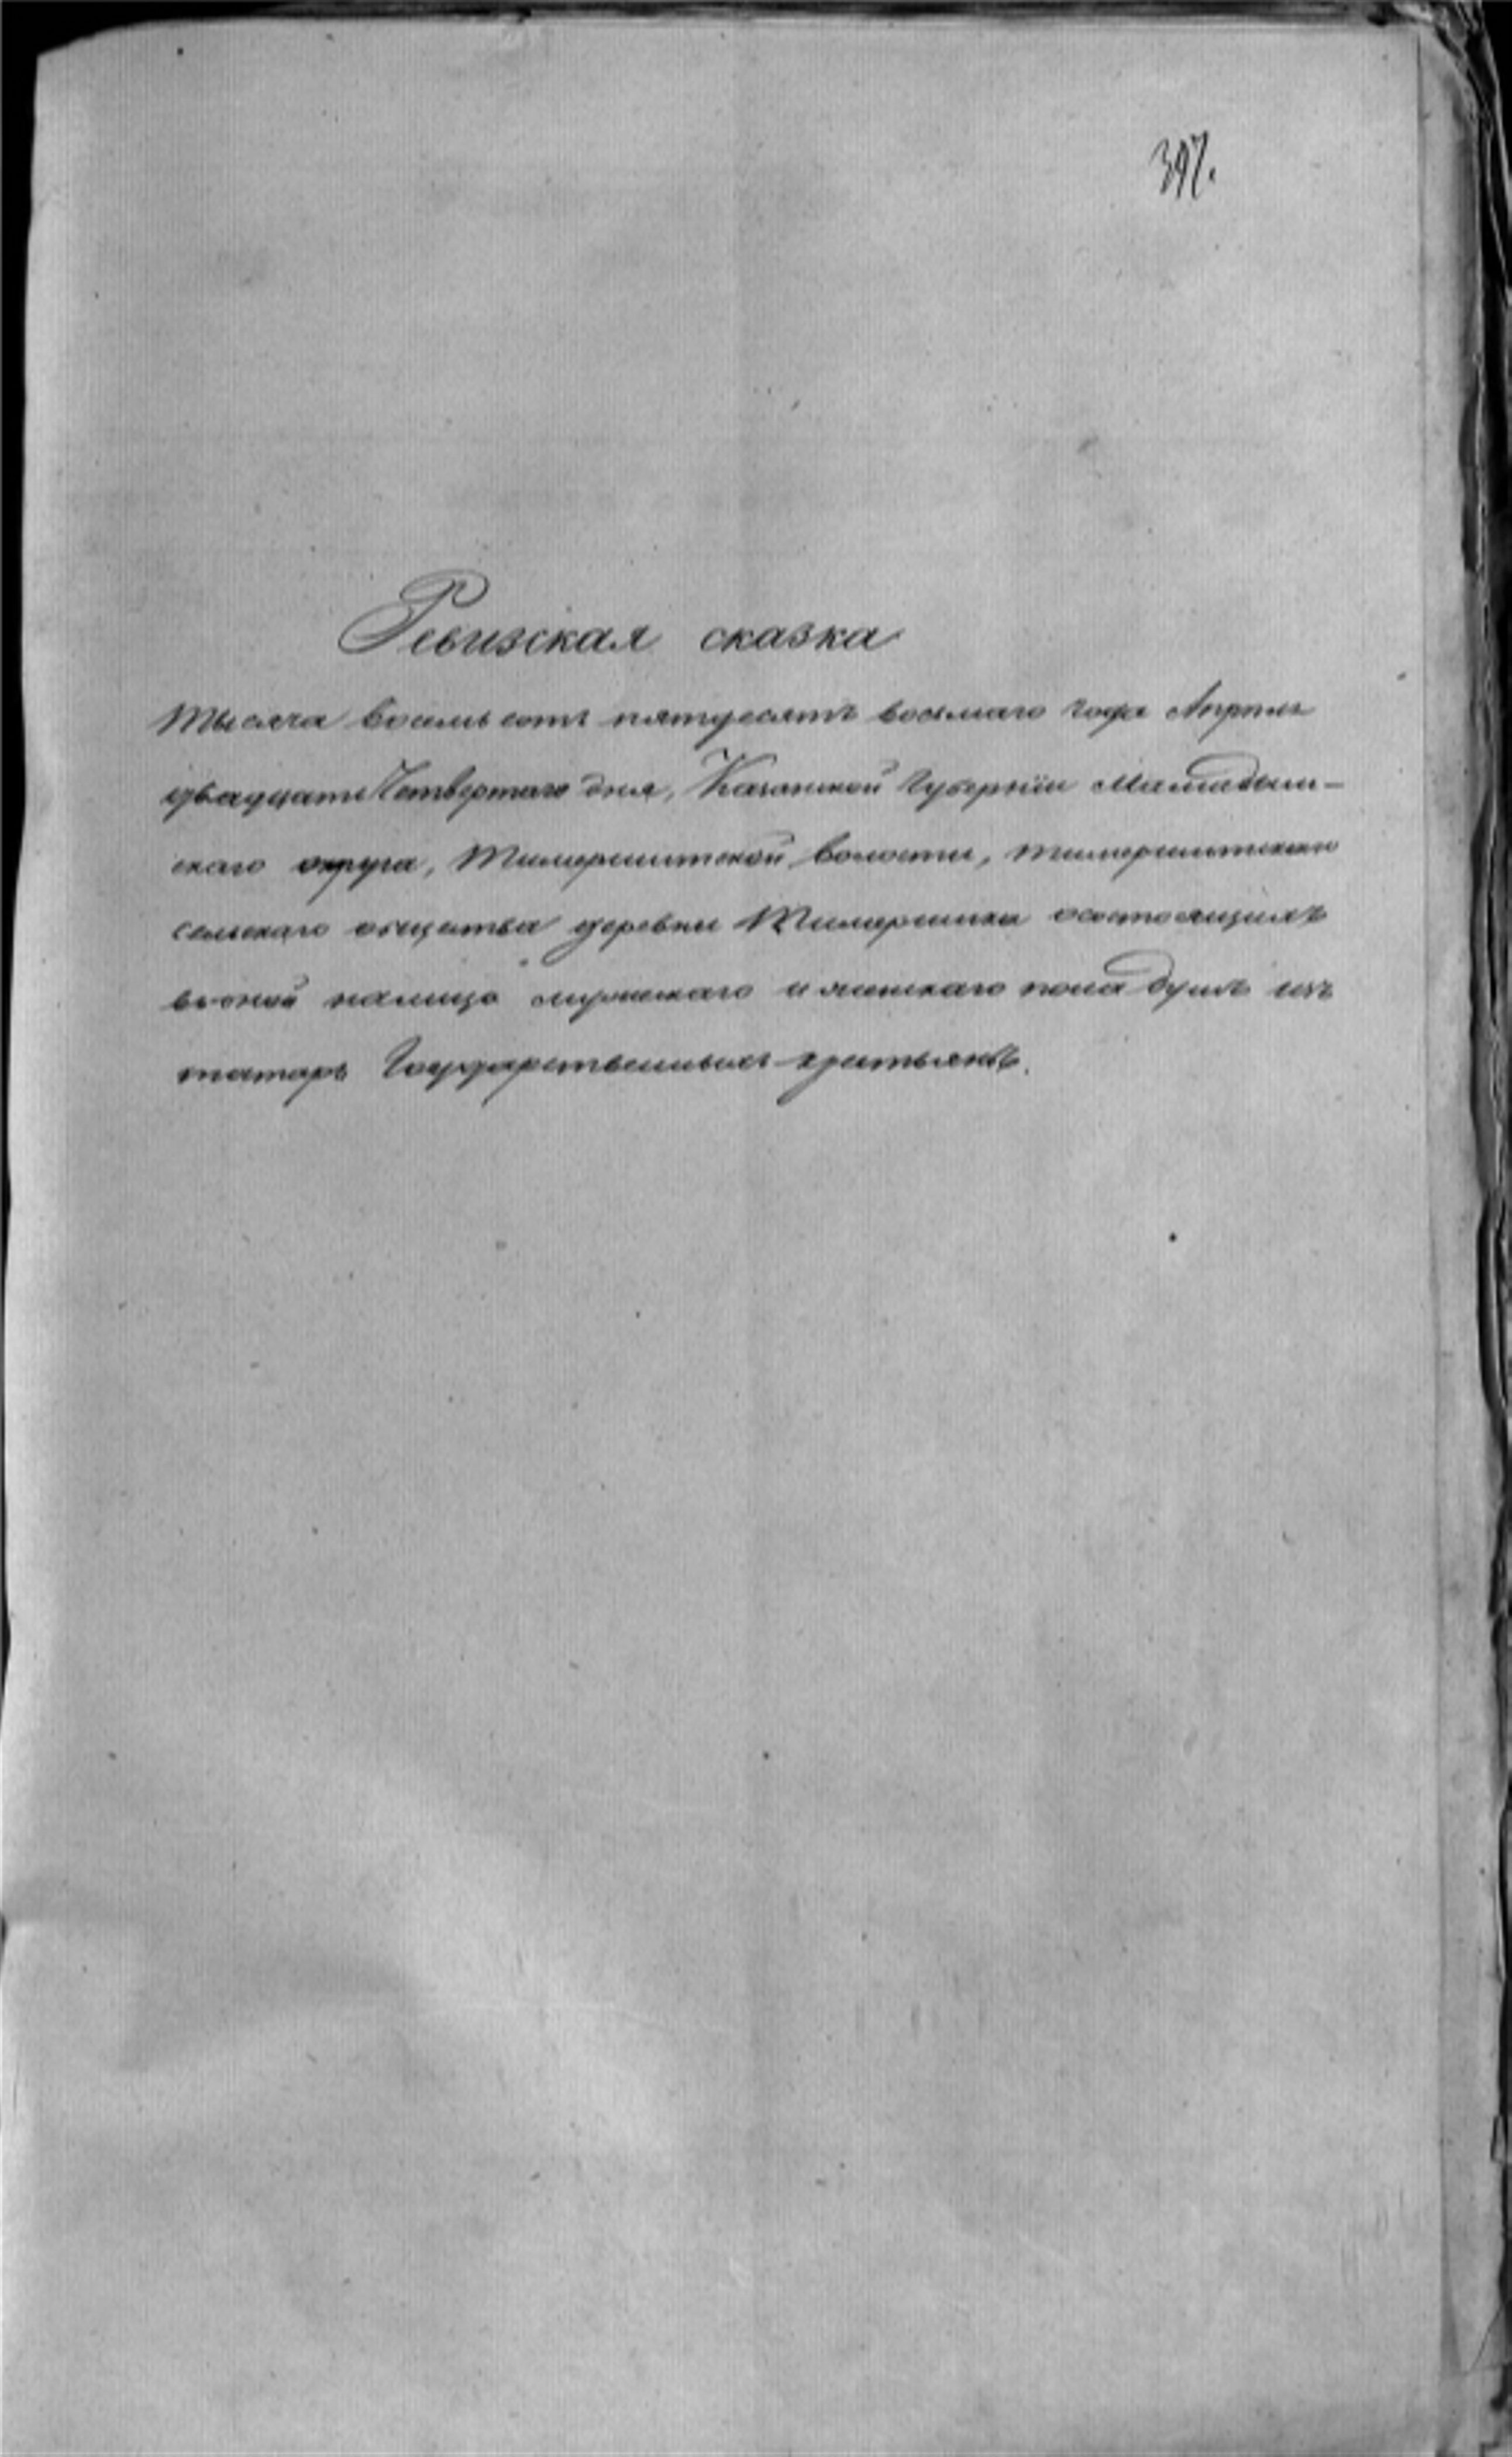 397.
Ревизская сказка
Тысяча восемь сотъ пятдесятъ восьмаго года Апреля
двадцать Четвертаго дня, Казанской Губернiи Мамадыш-
скаго округа, Тимершитской волости, тимершитскаго
сельскаго общества деревни Тимершика о состоящихъ
въ оной налицо мужескаго и женскаго пола душъ изъ
татаръ Государственныхъ крестьянъ.